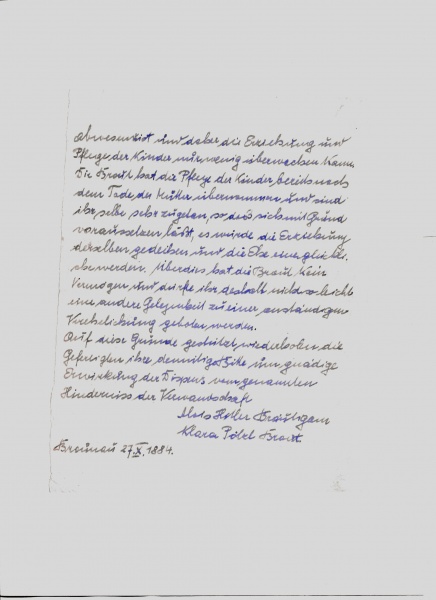 abwesend ist und daher die Erziehung und
Pflege der Kinder nur wenig überwachen kann.
Die Braut hat die Pflege der Kinder bereits nach
dem Tode der Mutter übernommen und sind
ihr selbe sehr zugetan, so daß sich mit Grund
voraussetzen läßt, es würde die Erziehung
derselben gedeihen und die Ehe eine glückli-
che werden. Überdies hat die Braut kein
Vermögen und dürfte ihr deshalb nicht so leicht
eine andere Gelegenheit zu einer anständigen
Verehelichung geboten werden.
Auf diese Gründe gestützt, wiederholen die
Gefertigten ihre demütige Bitte um gnädige
Erwirkung der Dispens vom genannten
Hindernisse der Verwandtschaft
Hitler Bräutigam
Klara Pölzl Braut.
Braunau 27. X. 1884.